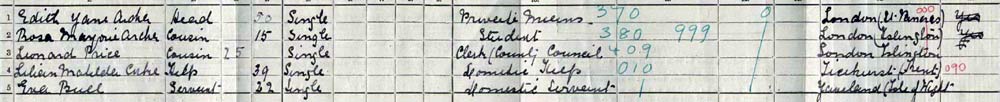 1 Edith Jane Archer Head 50 Single Private Means 370 0 London (St Pancras) Yes
2 Rosa Marjorie Archer Cousin 15 Single Student 380 999 London (Islington) Yes
3 Leonard Price Cousin 25 Single Clerk (County Council 409 London Islington
4 Lilian Matilda Help 39 Single Domestic Help 010 Ticehurst (Kent) 090
5 Eva Bull Servant 22 Single Domestic Servant (Isle of Wight